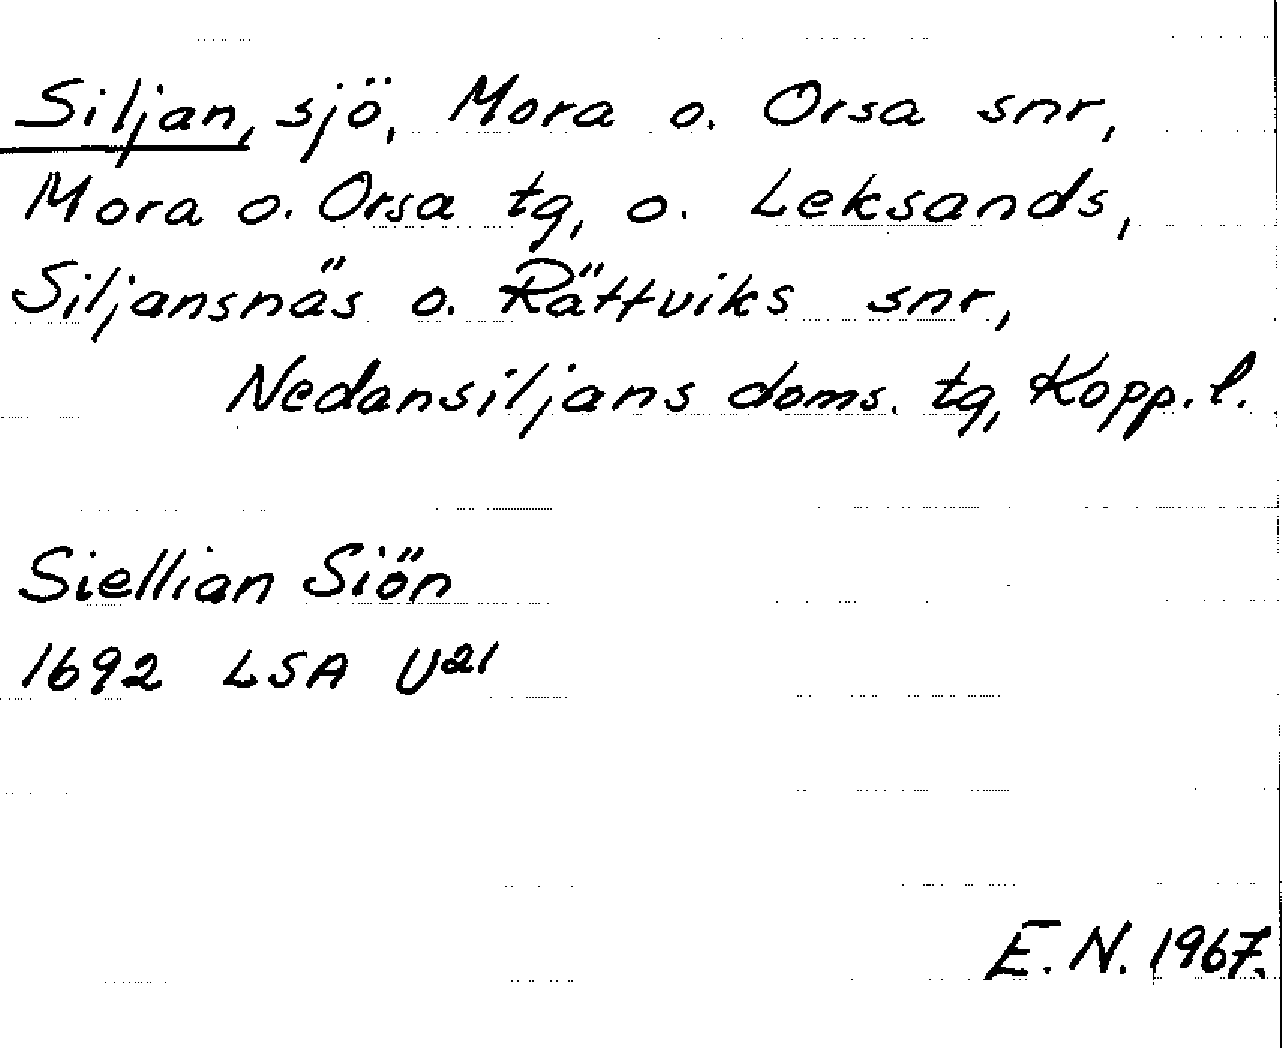 Siljan, sjö, Mora o. Orsa snr,
Mora o. Orsa tg, o. Leksands,
Siljansnäs o. Rättviks snr,
Nedansiljans doms. tg, Kopp. l.
Siellian Siön
1692 LSA U21
E. N. 1967.